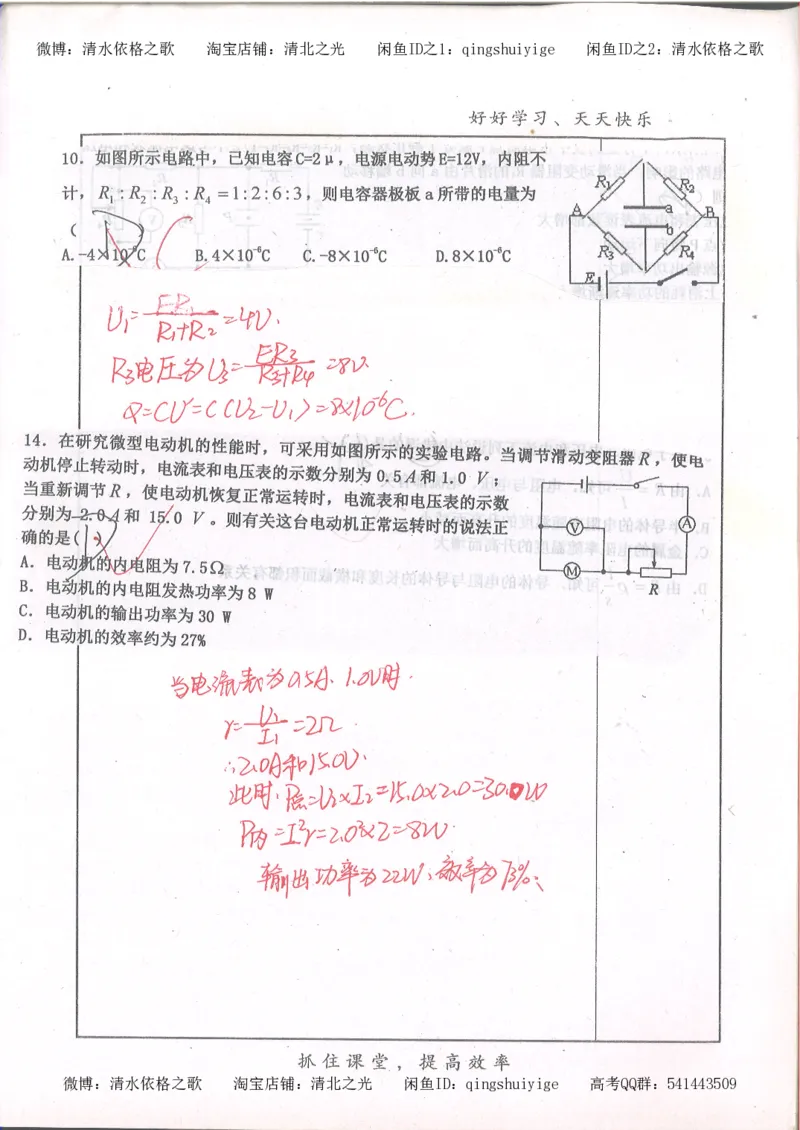 微博：清水依格之歌 淘宝店铺：清北之光 闲鱼ID之1：qingshuiyige 闲鱼ID之2：清水依格之歌
好好学习、天天快乐
10．如图所示电路中，已知电容C=2μ，电源电动势E=12V，内阻不
计，R₁:R₂:R₃:R₄=1:2:6:3，则电容器极板a所带的电量为
（ ）
A.-4×10⁻⁶C B.4×10⁻⁶C C.-8×10⁻⁶C D.8×10⁻⁶C
R₁ R₂
A a B
b
R₃ R₄
E
U₁=ER₁/(R₁+R₂)=4V.
R₃电压为U₃=ER₃/(R₃+R₄)=8V
Q=CU=C(U₂-U₁)=8×10⁻⁶C.
14．在研究微型电动机的性能时，可采用如图所示的实验电路。当调节滑动变阻器R，使电
动机停止转动时，电流表和电压表的示数分别为0.5A和1.0 V；
当重新调节R，使电动机恢复正常运转时，电流表和电压表的示数
分别为2.0A和 15.0 V 。则有关这台电动机正常运转时的说法正
确的是( )
A．电动机的内电阻为7.5Ω
B．电动机的内电阻发热功率为8 W
C．电动机的输出功率为30 W
D．电动机的效率约为27%
V A
M R
当电流表为0.5A、1.0V时.
r=U₁/I₁=2Ω
∴2.0A和15.0V.
此时.P总=U₂×I₂=15.0×2.0=30.0W
P内=I²r=2.0²×2=8W
输出功率为22W，效率为73%；
抓住课堂，提高效率
微博：清水依格之歌 淘宝店铺：清北之光 闲鱼ID：qingshuiyige 高考QQ群：541443509